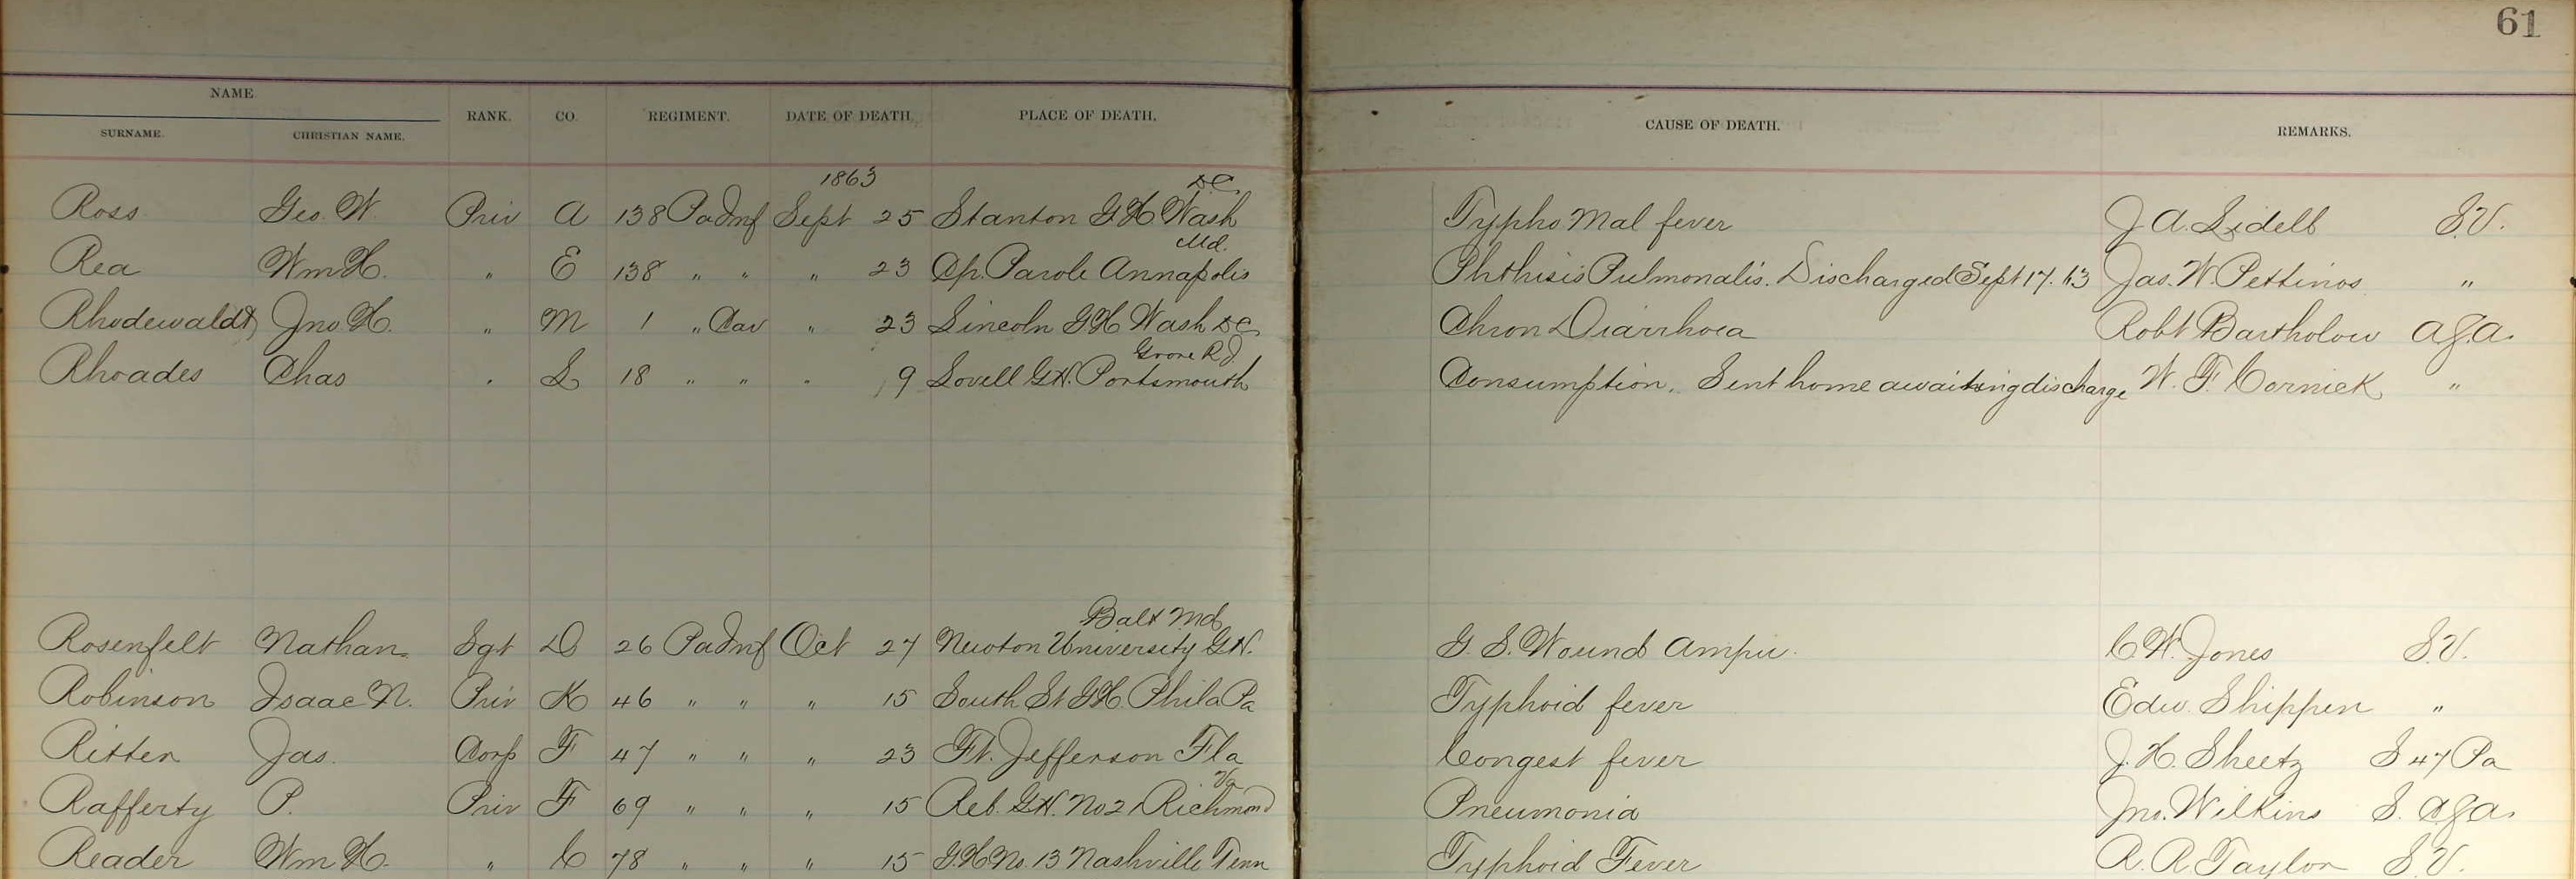 61
NAME.
SURNAME. CHRISTIAN NAME. RANK. CO. REGIMENT. DATE OF DEATH. PLACE OF DEATH. CAUSE OF DEATH. REMARKS.
1863 D.C.
Ross Geo. W. Priv A 138 Pa Inf Sept 25 Stanton G H Wash Typho Mal fever J A. Lidell S.V.
Md.
Rea Wm H. " E 138 " " " 23 Cp. Parole Annapolis Phthisis Pulmonalis. Discharged Sept 17. 63 Jas. W. Pettinos "
Rhodewaldt, Jno. H. " M 1 " Cav " 23 Lincoln G H Wash D C Chron Diarrhoea Robt Bartholow
Grove R I
Rhoades Chas " L 18 " " " 9 Lovell G H. Portsmouth Consumption. Sent home awaiting discharge W. F. Cornick "
Balt Md
Rosenfelt Nathan Sgt D 26 Pa Inf Oct 27 Newton University G H. G. S. Wound Ampu. C. W. Jones S.V.
Robinson Isaac N. Priv K 46 " " " 15 South St G H. Phila Pa Typhoid fever Edw. Shippen "
Ritter Jas. Corp F 47 " " " 23 Ft. Jefferson Fla Congest fever J. H. Sheetz S 47 Pa
Va
Rafferty P. Priv F 69 " " " 15 Reb. G H. No 2 Richmond Pneumonia Jno. Wilkins S.
Reader Wm H. " C 78 " " " 15 G. H No. 13 Nashville Tenn Typhoid Fever R. R Taylor S.V.